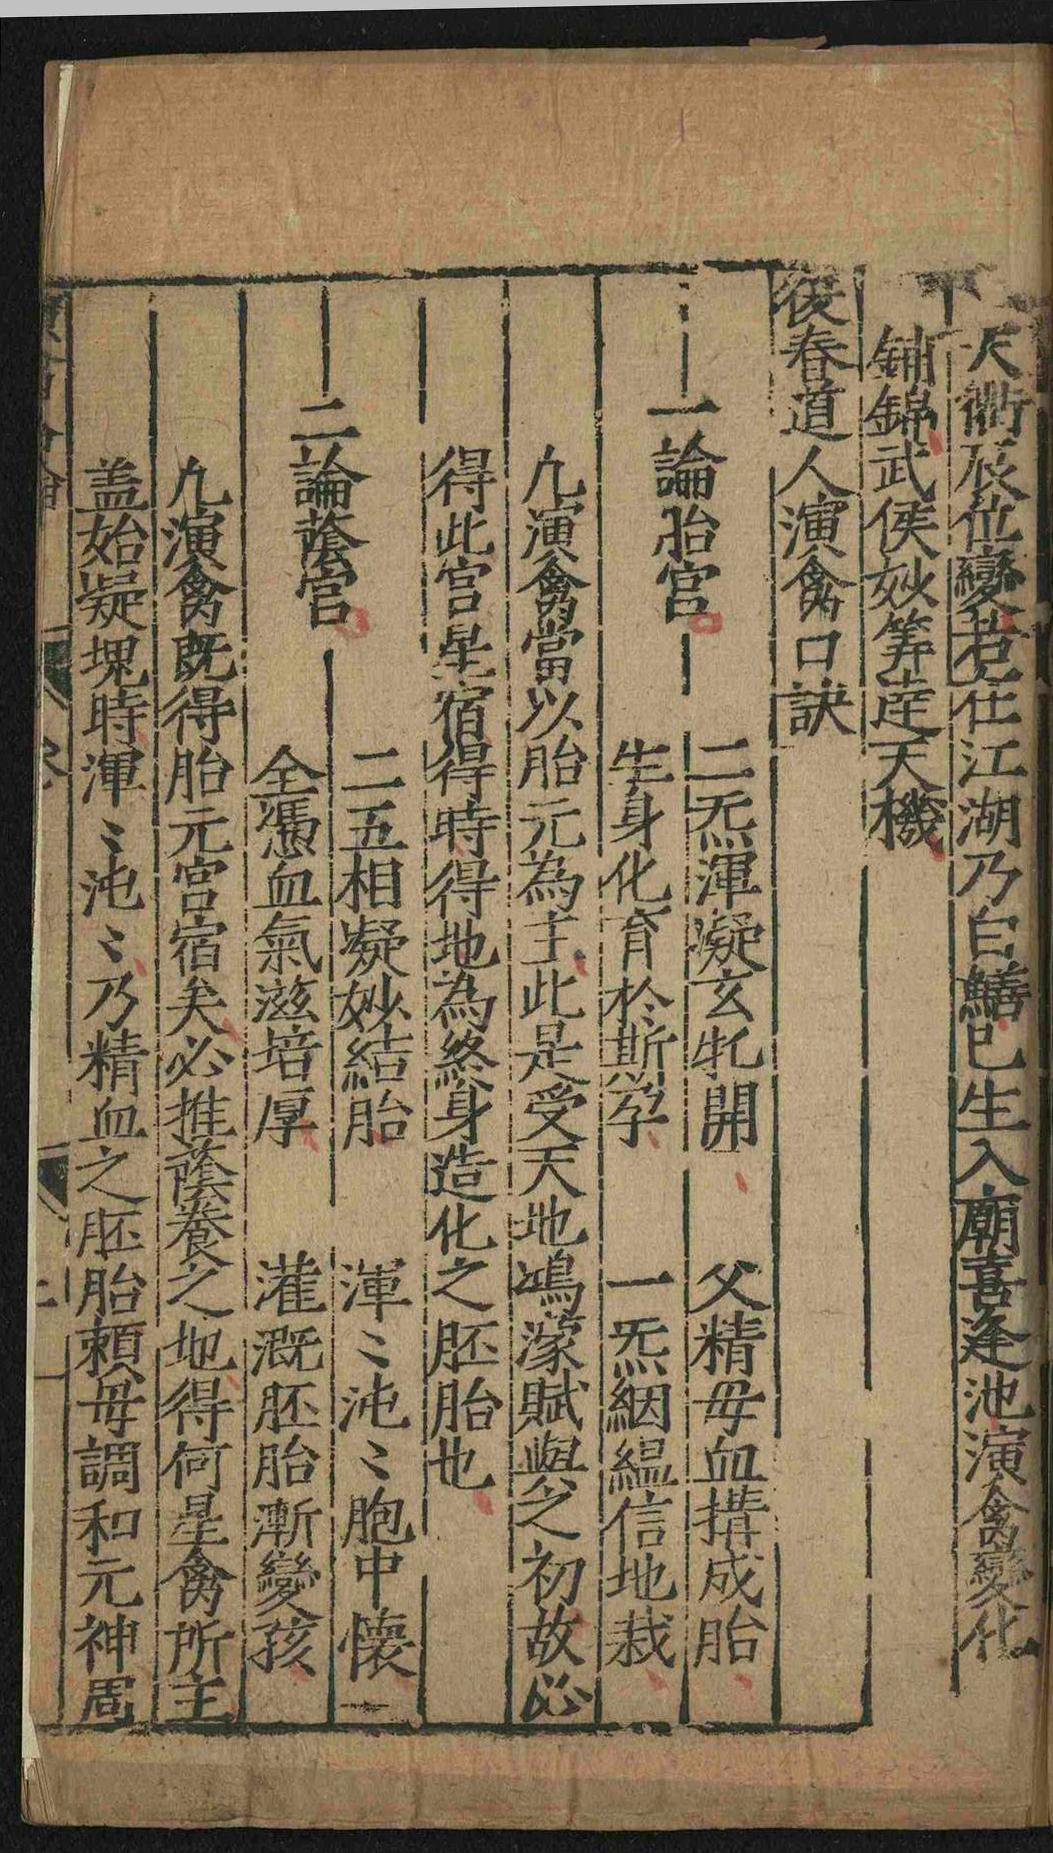 天衢辰位變君在江湖乃白鱔巳生入廟喜逢池演禽變化
鋪錦武侯妙筭定天機
後春道人演禽口訣
一論胎宮
二炁渾凝玄牝開　父精母血搆成胎
生身化育於斯孕　一炁絪縕信地栽
凢演禽當以胎元為主此是受天地鴻濛賦與之初故必
得此宮星宿得時得地為終身造化之胚胎也
二論蔭宮
二五相凝妙結胎　渾〻沌〻胞中懷
全憑血氣滋培厚　灌溉胚胎漸變孩
凢演禽既得胎元宮宿矣必推蔭養之地得何星禽所主
盖始凝塊時渾〻沌〻乃精血之胚胎賴母調和元神周